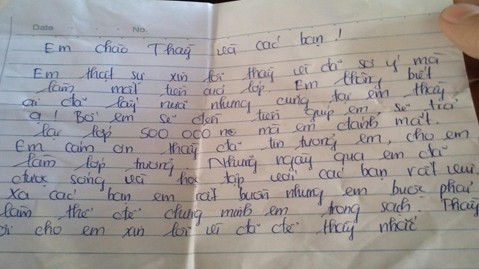 Date No.
Em chào Thầy và các bạn!
Em thật sự xin lỗi thầy vì đã sơ ý mà
làm mất tiền quỹ lớp. Em không biết
ai đã lấy nữa nhưng cũng tại em thầy
ạ! Bố em sẽ đến tiền giúp em, sẽ trả
lại lớp 500 000 mà em đánh mất.
Em cảm ơn thầy đã tin tưởng em, cho em
làm lớp trưởng. Những ngày qua em đã
được sống và học tập với các bạn rất vui.
Xa các bạn em rất buồn nhưng em buộc phải
làm thế để chứng minh em trong sạch. Thầy
cho em xin lỗi vì đã để thầy nhắc